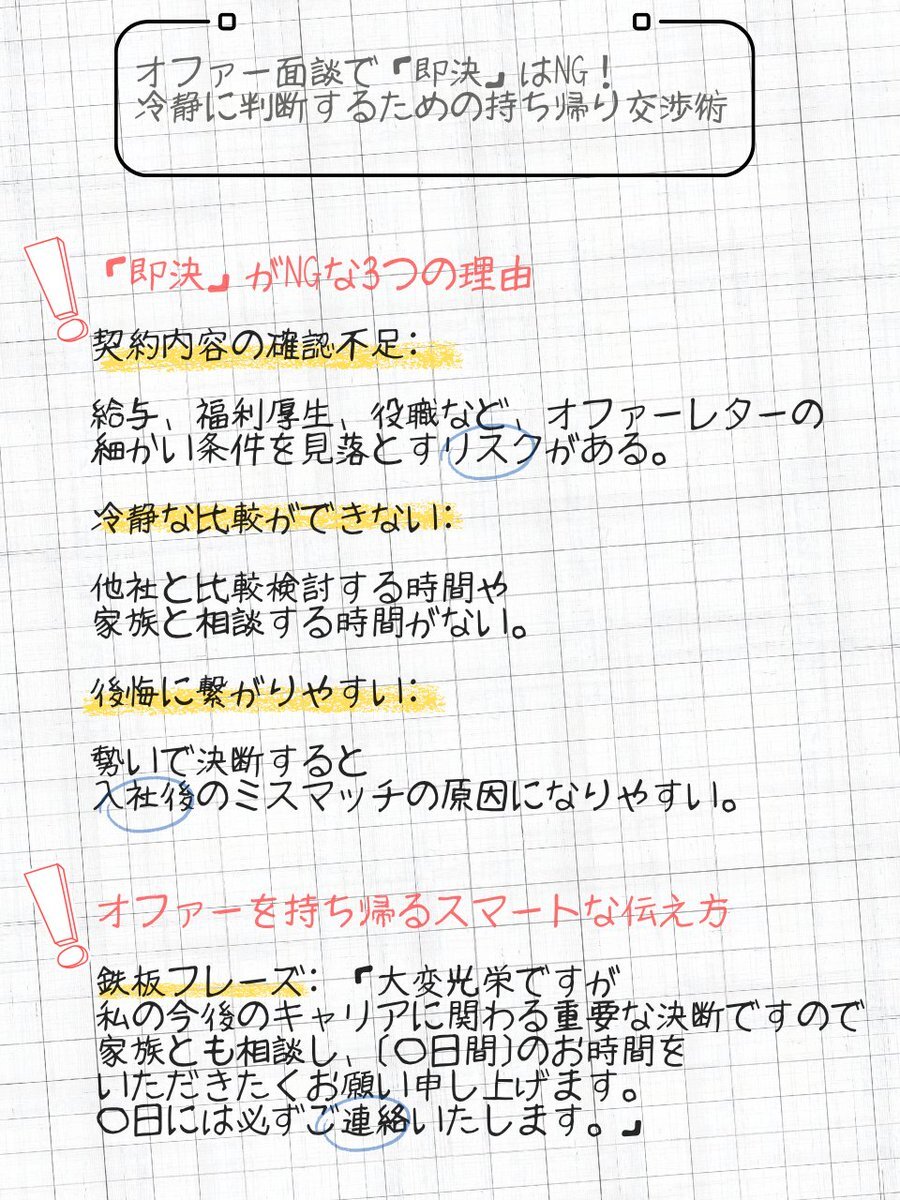 オファー面談で「即決」はNG！
冷静に判断するための持ち帰り交渉術
「即決」がNGな3つの理由
契約内容の確認不足：
給与、福利厚生、役職など、オファーレターの
細かい条件を見落とすリスクがある。
冷静な比較ができない：
他社と比較検討する時間や
家族と相談する時間がない。
後悔に繋がりやすい：
勢いで決断すると
入社後のミスマッチの原因になりやすい。
オファーを持ち帰るスマートな伝え方
鉄板フレーズ：「大変光栄ですが
私の今後のキャリアに関わる重要な決断ですので
家族とも相談し、〔〇日間〕のお時間を
いただきたくお願い申し上げます。
〇日には必ずご連絡いたします。」